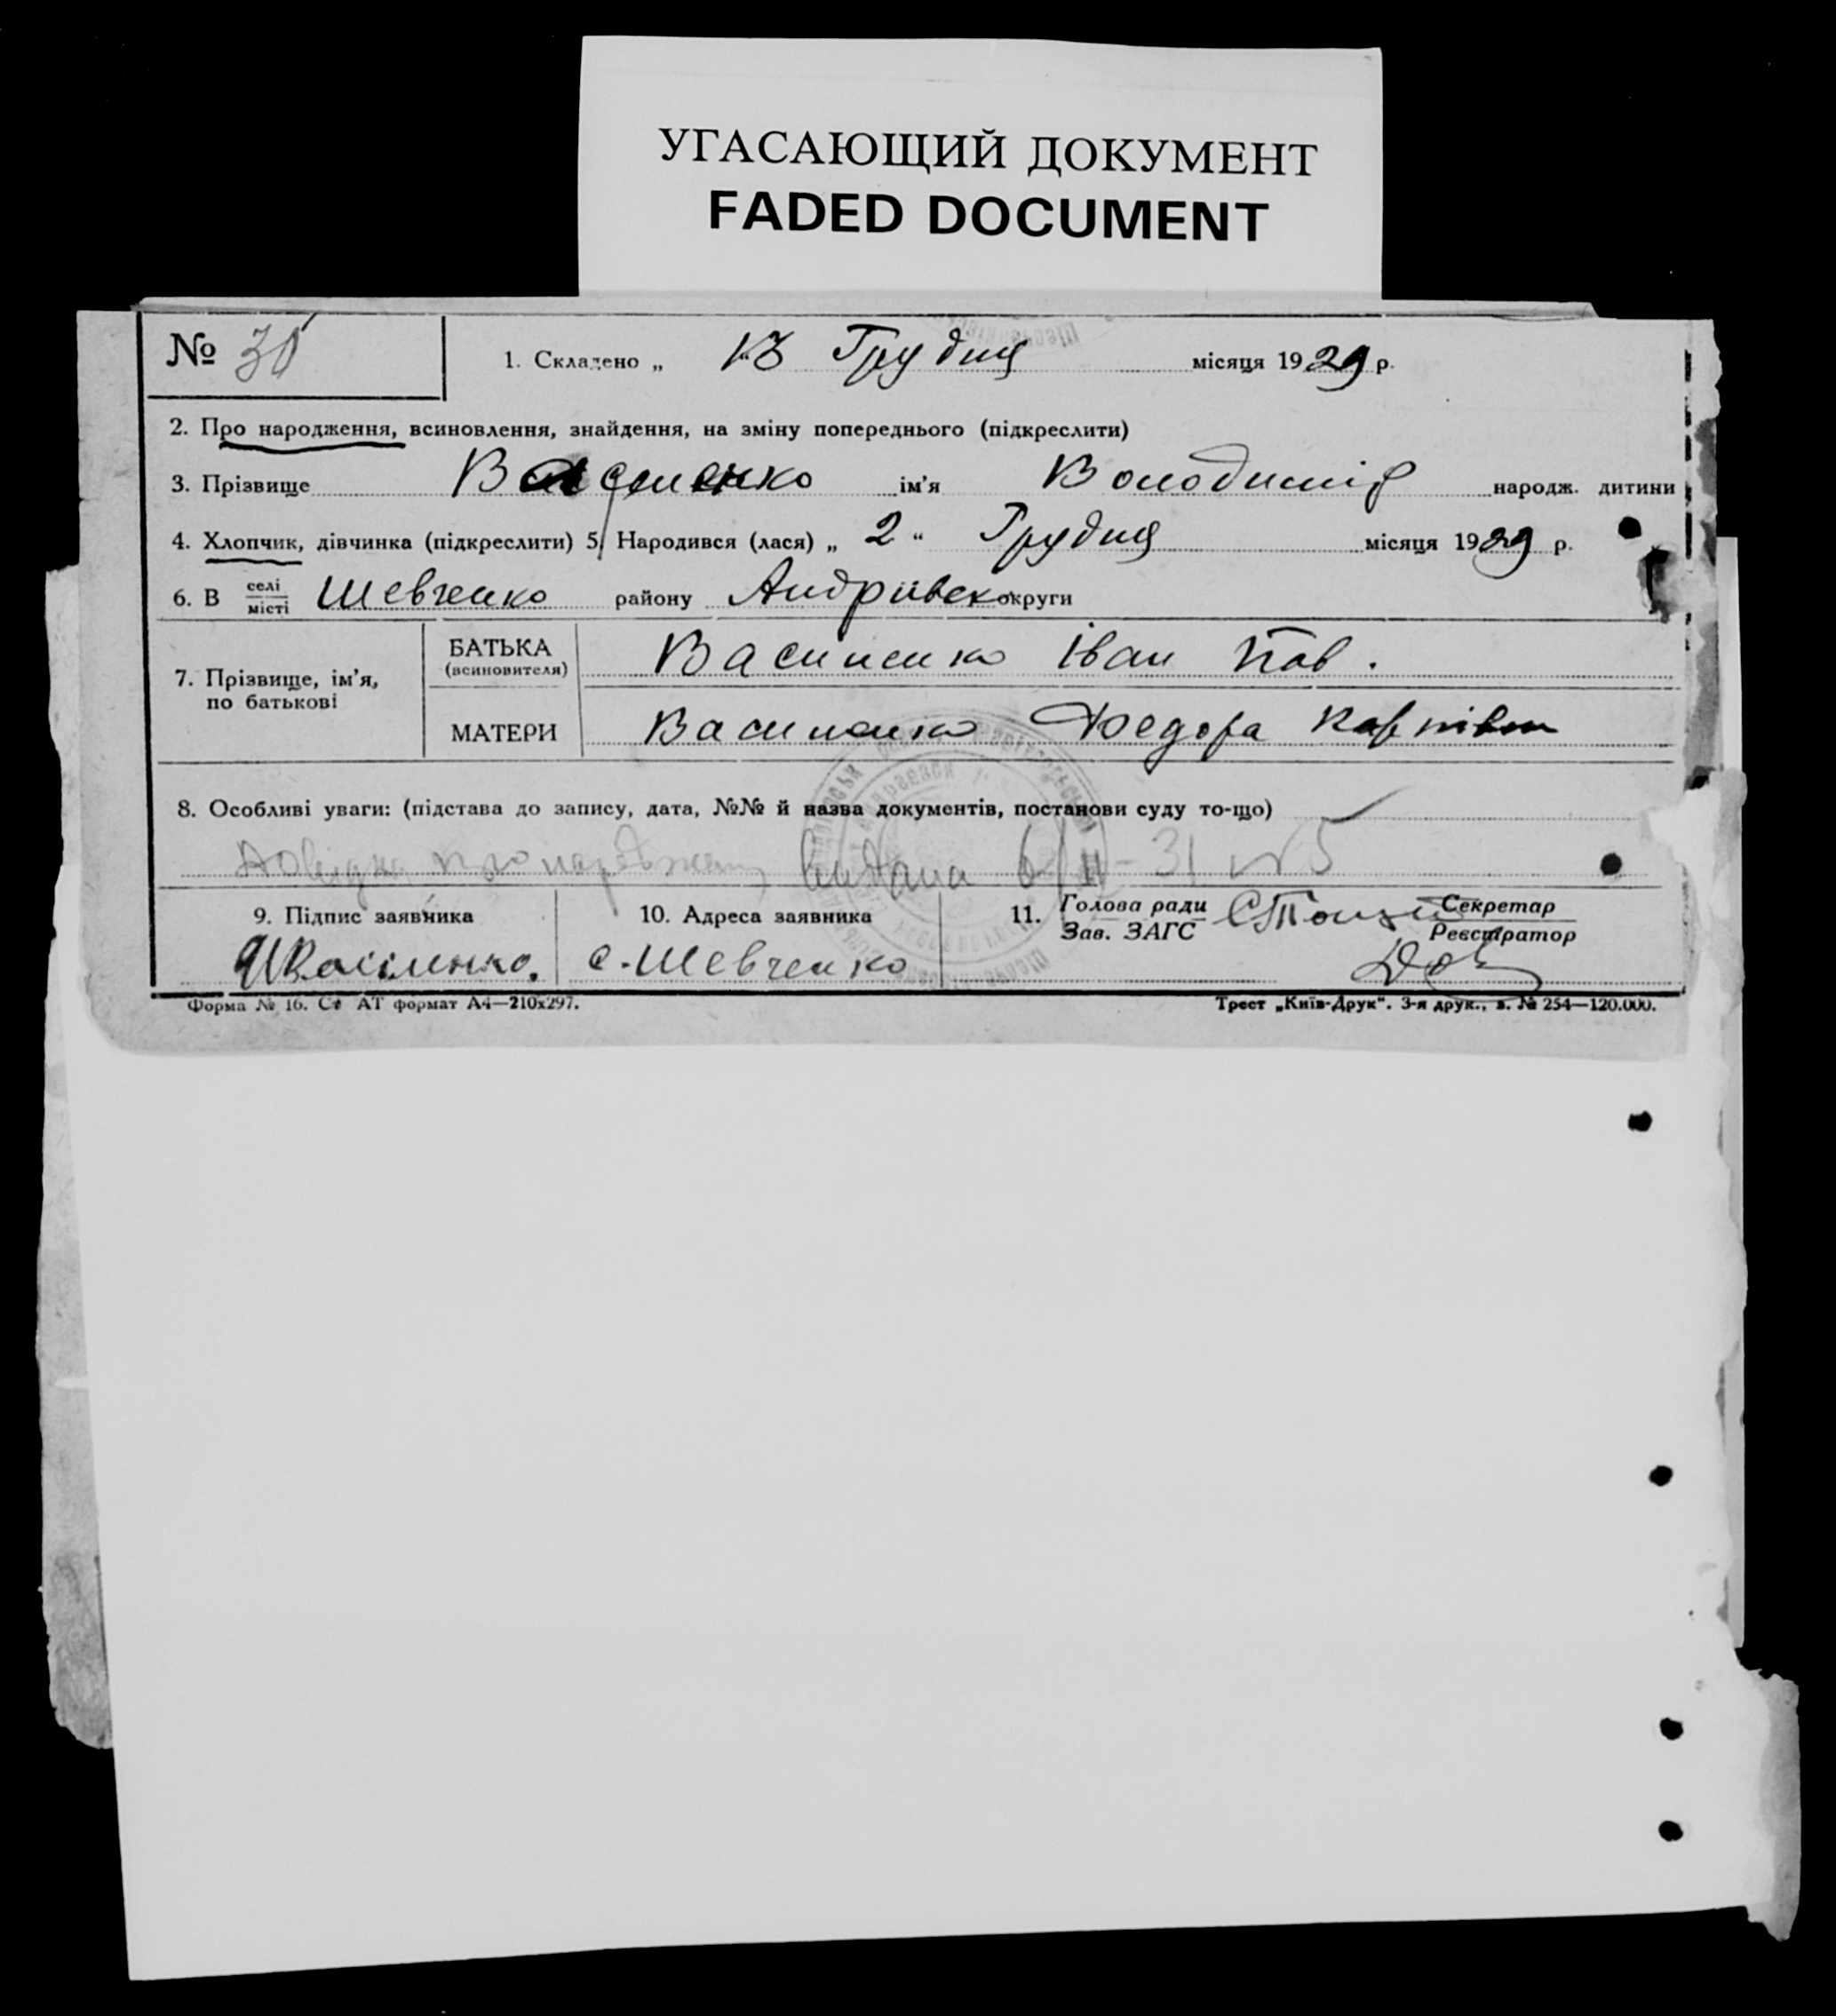 УГАСАЮЩИЙ ДОКУМЕНТ
FADED DOCUMENT
№ 30
1. Складено „ 13 Грудня місяця 1929 р.
2. Про народження, всиновлення, знайдення, на зміну попереднього (підкреслити)
3. Прізвище Василенко ім'я Володимір народж. дитини
4. Хлопчик, дівчинка (підкреслити) 5. Народився (лася) „ 2 “ Грудня місяця 1929 р.
6. В селі місті Шевченко району Андріівськ округи
7. Прізвище, ім'я, по батькові
БАТЬКА (всиновителя) Василенко Іван Пав.
МАТЕРИ Василенко Федора Карпівна
8. Особливі уваги: (підстава до запису, дата, №№ й назва документів, постанови суду то-що)
Довідка про народження видана 6/II-31 №5
9. Підпис заявника
10. Адреса заявника
11. Голова ради Секретар
Зав. ЗАГС Реєстратор
Василенко. с. Шевченко
Форма № 16. Ст АТ формат А4—210x297.
Трест „Київ-Друк“. 3-я друк., з. № 254—120.000.